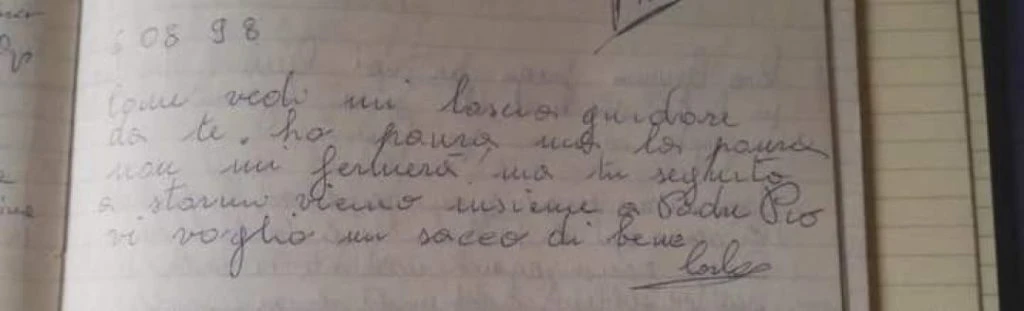 6 08 98
Come vedi mi lascio guidare
da te. ho paura ma la paura
non mi fermerà, ma tu seguita
a starmi vicino insieme a Padre Pio
vi voglio un sacco di bene
Carlo